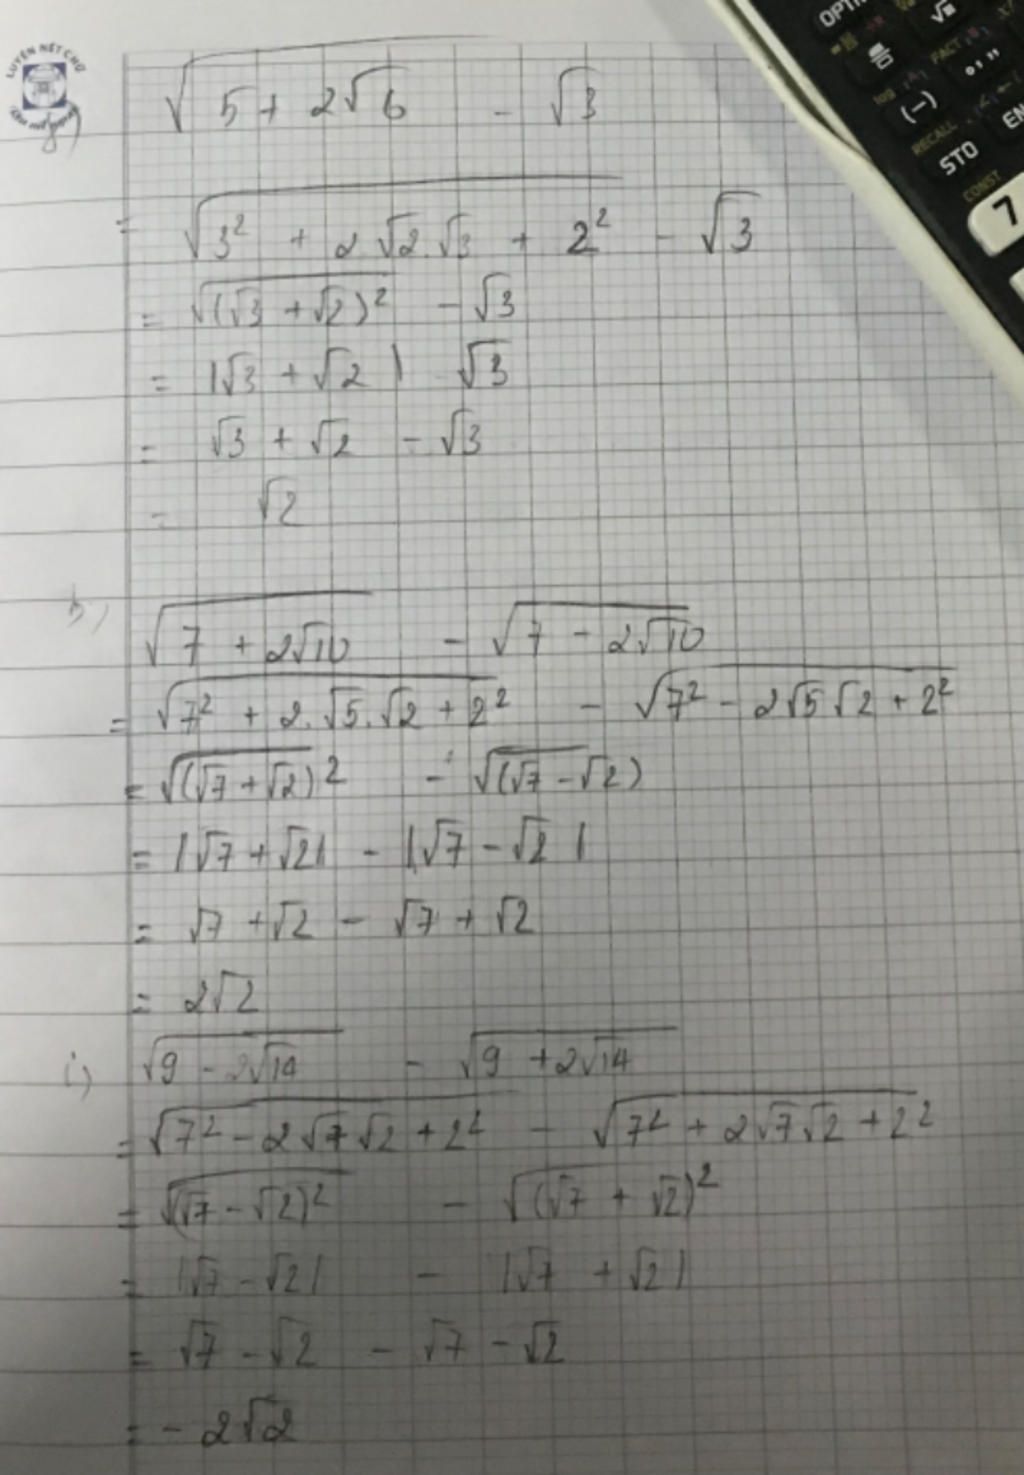 LUYỆN NÉT CHỮ
√(5 + 2√6) - √3
= √(3² + 2√2.√3 + 2²) - √3
= √((√3 + √2)²) - √3
= |√3 + √2| √3
= √3 + √2 - √3
= √2
h) √(7 + 2√10) - √(7 - 2√10)
= √(7² + 2.√5.√2 + 2²) - √(7² - 2√5√2 + 2²)
= √((√7 + √2)²) - √((√7 - √2))
= |√7 + √2| - |√7 - √2|
= √7 + √2 - √7 + √2
= 2√2
i) √(9 - 2√14) - √(9 + 2√14)
= √(7² - 2√7√2 + 2²) - √(7² + 2√7√2 + 2²)
= √((√7 - √2)²) - √((√7 + √2)²)
= |√7 - √2| - |√7 + √2|
= √7 - √2 - √7 - √2
= - 2√2
OPTN
√
FACT
° ' "
log
(−)
RECALL
STO
EN
CONST
7